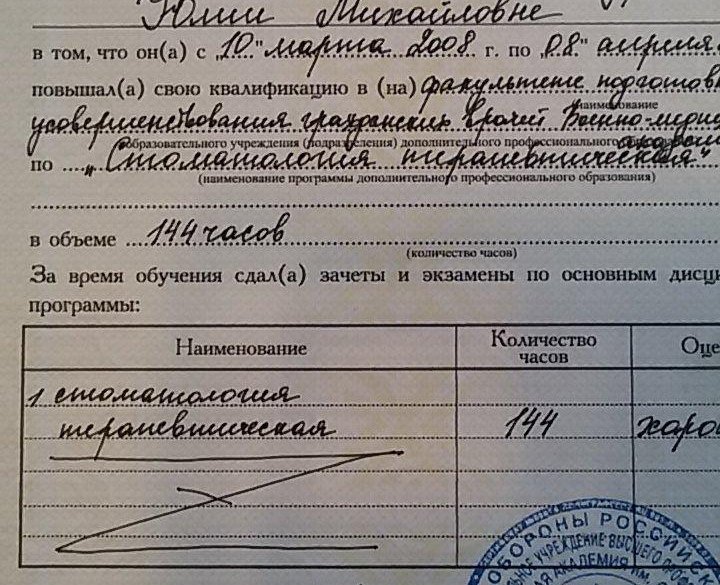 Юлии Михайловне
в том, что он(а) с „10" марта 2008 г. по „08" апреля
повышал(а) свою квалификацию в (на) факультете подготов
наименование
усовершенствования гражданских врачей Военно-медиц
академи
образовательного учреждения (подразделения) дополнительного профессионального
по „Стоматология терапевтическая"
(наименование программы дополнительного профессионального образования)
в объеме 144 часов
(количество часов)
За время обучения сдал(а) зачеты и экзамены по основным дисци
программы:
Наименование Количество часов Оце
1 стоматология
терапевтическая 144 хоро
ОБОРОНЫ РОССИЙС
УЧРЕЖДЕНИЕ ВЫСШЕГО ПРО
АКАДЕМИЯ ИМ